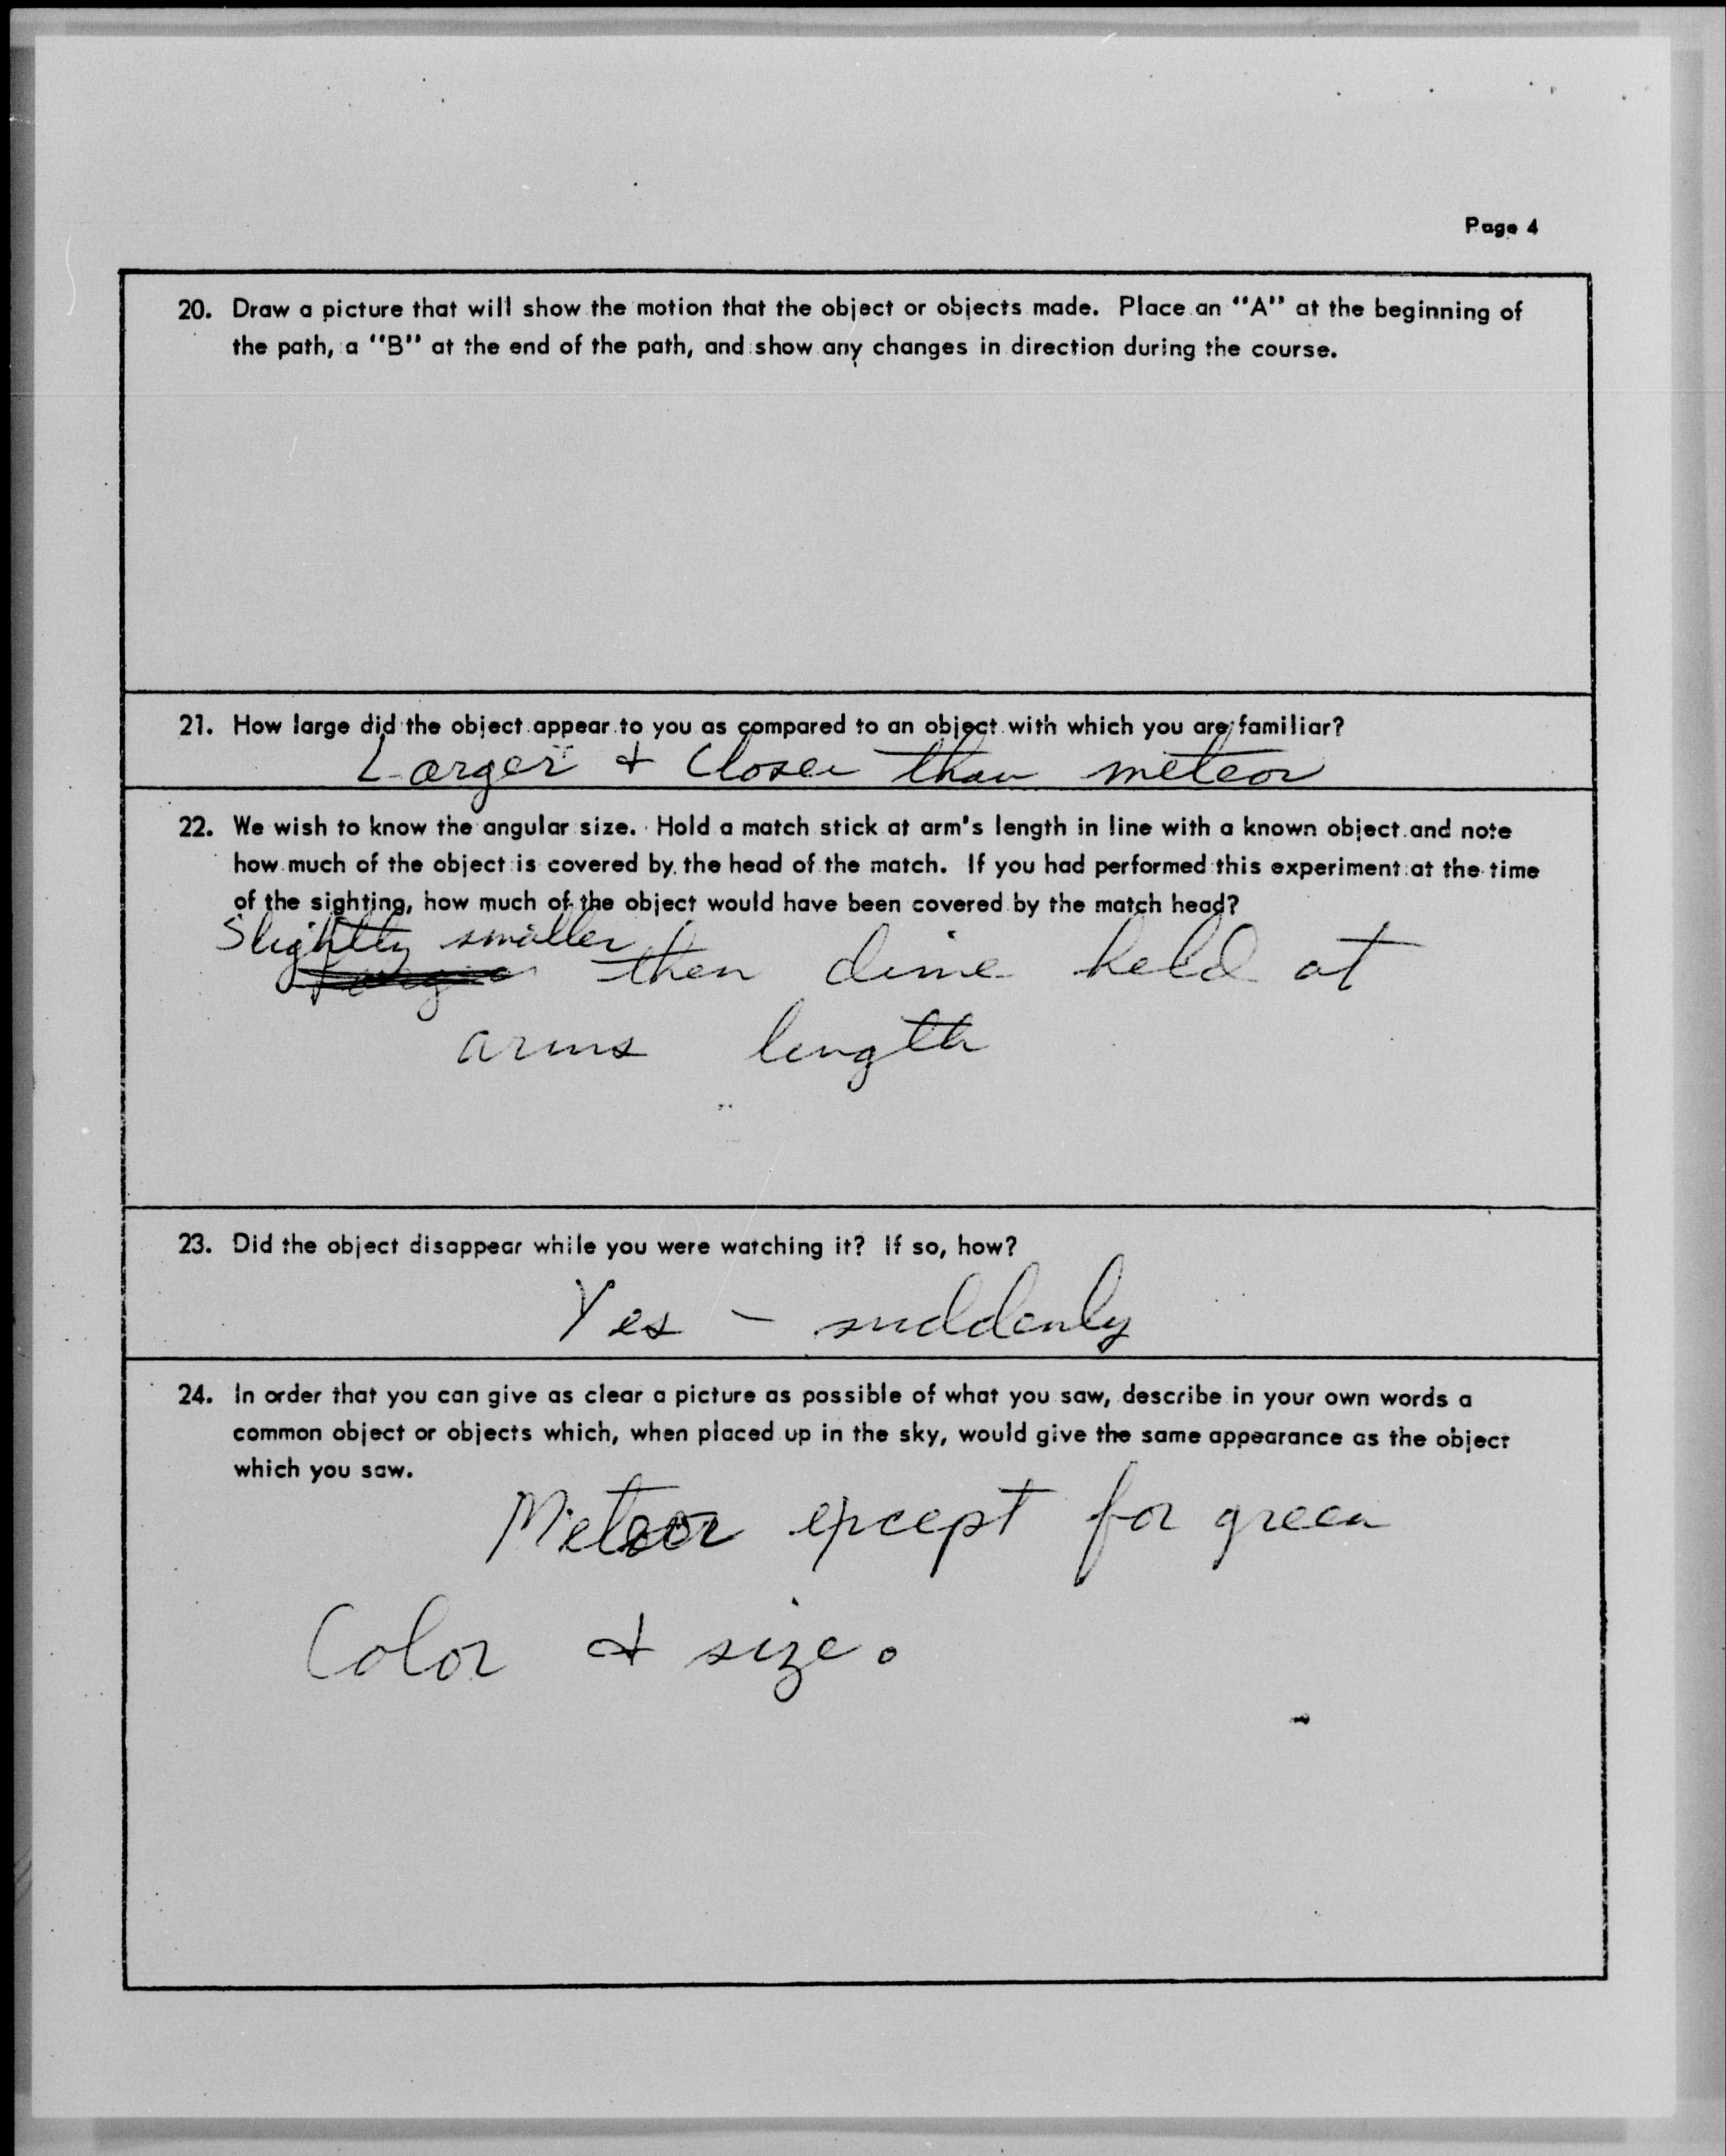 Page 4
20. Draw a picture that will show the motion that the object or objects made. Place an "A" at the beginning of
the path, a "B" at the end of the path, and show any changes in direction during the course.
21. How large did the object appear to you as compared to an object with which you are familiar?
Larger & Closer than meteor
22. We wish to know the angular size. Hold a match stick at arm's length in line with a known object and note
how much of the object is covered by the head of the match. If you had performed this experiment at the time
of the sighting, how much of the object would have been covered by the match head?
Slightly smaller
then dime held at
arms length
23. Did the object disappear while you were watching it? If so, how?
Yes - suddenly
24. In order that you can give as clear a picture as possible of what you saw, describe in your own words a
common object or objects which, when placed up in the sky, would give the same appearance as the object
which you saw.
Meteor except for green
Color & size.